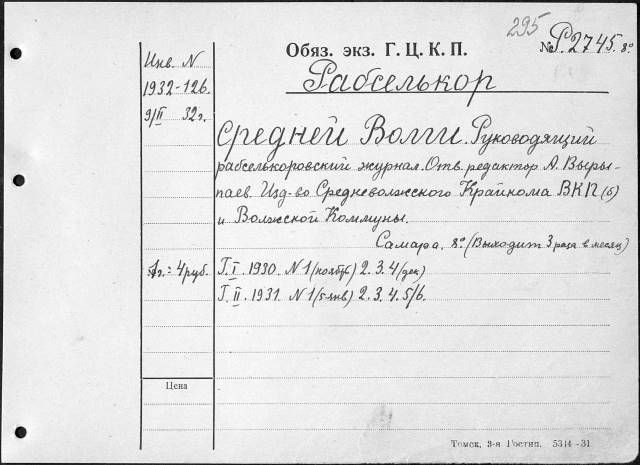 295
Обяз. экз. Г. Ц. К. П.
№ Р.2745. 8°
Рабселькор
Инв. N
1932-126.
9/II 32г.
Средней Волги. Руководящий
рабселькоровский журнал. Отв. редактор А. Выры-
паев. Изд-во Средневолжского Крайкома ВКП(б)
и Волжской Коммуны.
Самара. 8° (Выходит 3 раза в месяц)
1г. = 4 руб.
Г. I. 1930. N 1 (ноябрь) 2. 3. 4 (дек)
Г. II. 1931. N 1 (5-янв) 2. 3. 4. 5/6.
Цена
Томск, 3-я Гостип. 5314-31